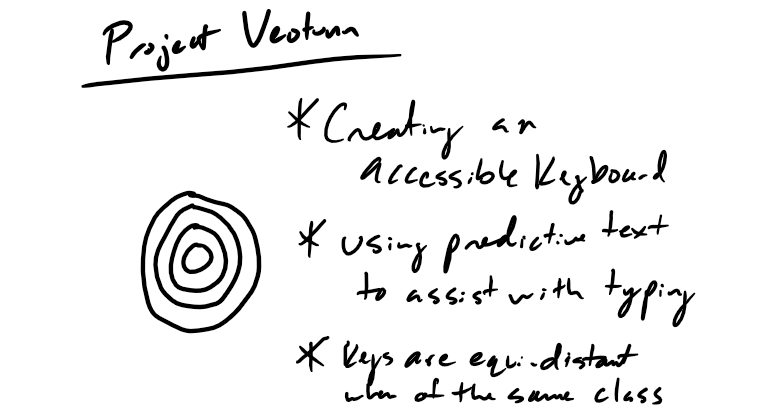 Project
* Creating an
accessible Keyboard
* using predictive text
to assist with typing
* Keys are equi-distant
when of the same class